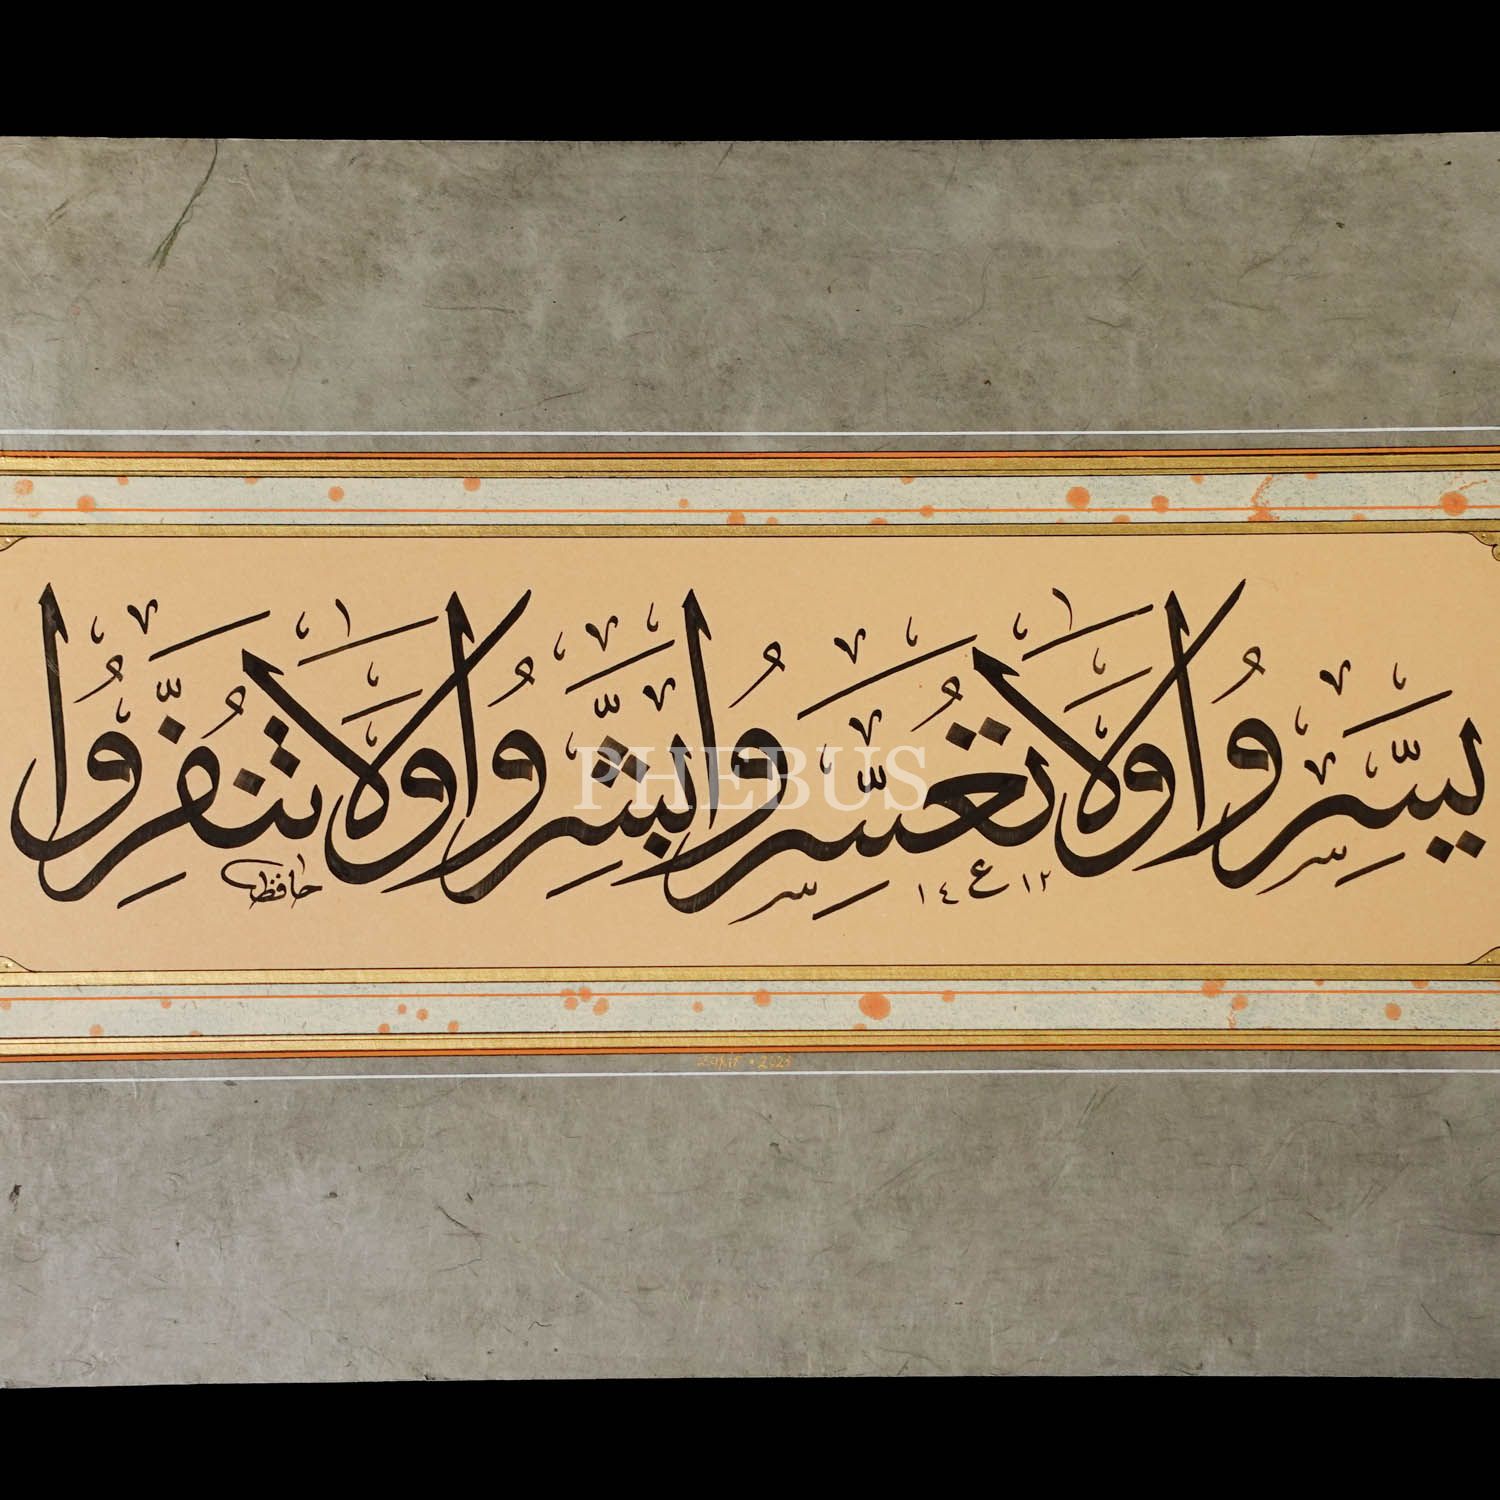 يَسِّرُوا وَلَا تُعَسِّرُوا بَشِّرُوا وَلَا تُنَفِّرُوا
حافظ
PHEBUS